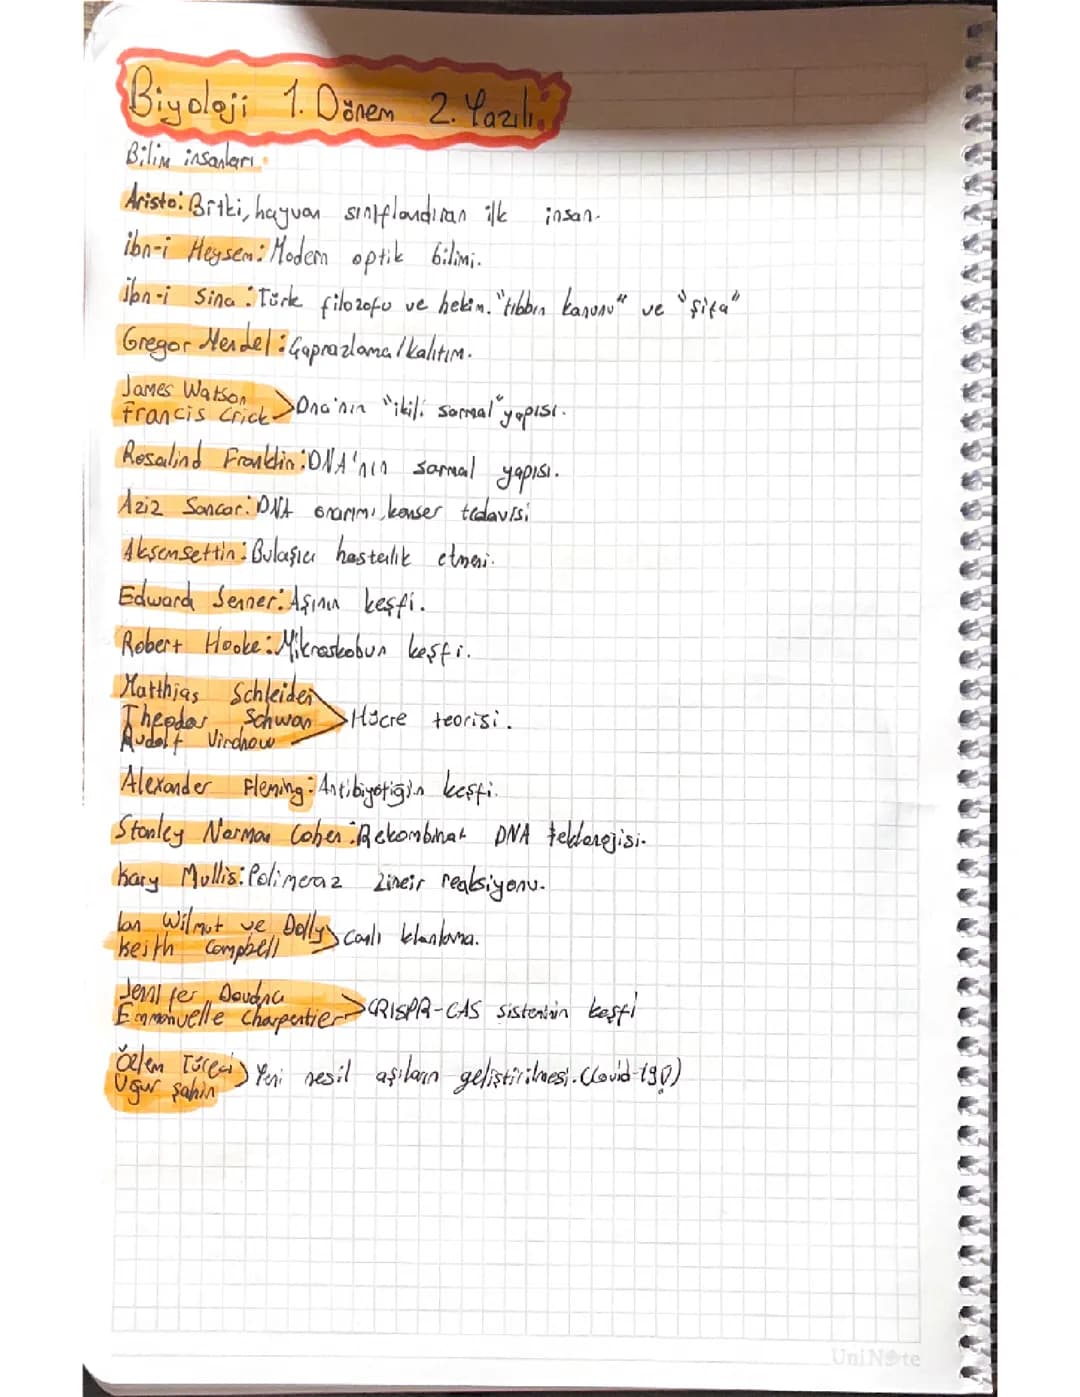 Biyoloji 1. Dönem 2. Yazılı:
Bilim insanları:
Aristo: Bitki, hayvan sınıflandıran ilk insan.
ibn-i Heysem: Modern optik bilimi.
ibn-i Sina: Türk filozofu ve hekim. "tıbbın kanunu" ve "şifa"
Gregor Mendel: Çaprazlama/kalıtım.
James Watson
Francis Crick > Dna'nın "ikili sarmal" yapısı.
Rosalind Franklin: DNA'nın sarmal yapısı.
Aziz Sancar: DNA onarımı, kanser tedavisi
Akşemsettin: Bulaşıcı hastalık etmeni.
Edward Jenner: Aşının keşfi.
Robert Hooke: Mikroskobun keşfi.
Matthias Schleiden
Theodor Schwan > Hücre teorisi.
Rudolf Virchow
Alexander Fleming: Antibiyotiğin keşfi.
Stanley Norman Cohen: Rekombinat DNA teknolojisi.
Kary Mullis: Polimeraz zincir reaksiyonu.
Ian Wilmut ve Dolly > Canlı klonlama.
Keith Campbell
Jenni fer Doudna
Emmanuelle Charpentier > CRISPR-CAS sisteminin keşfi
Özlem Türeci > Yeni nesil aşıların geliştirilmesi. (Covid-19)
Uğur Şahin
UniNote